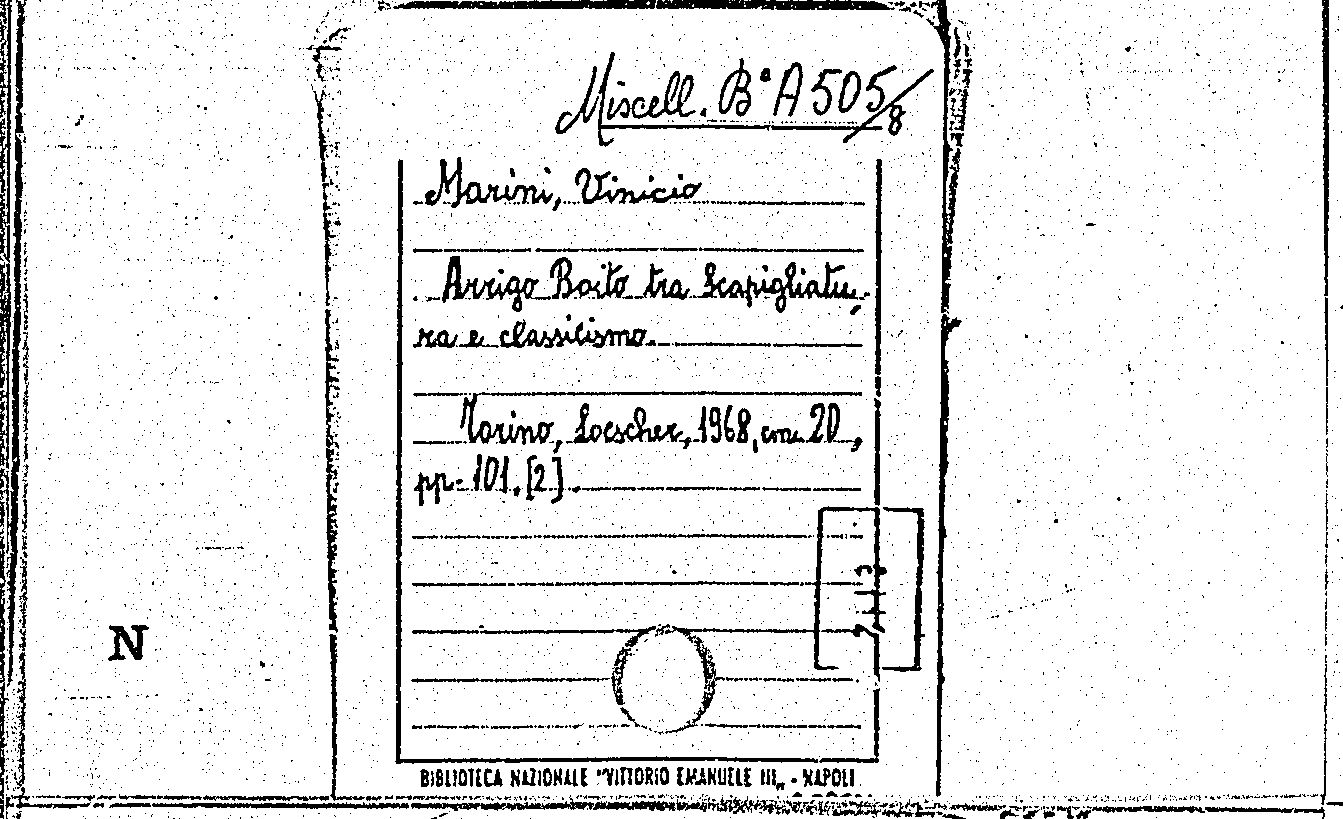 Miscell. B^a A 505/8
Marini, Vinicio
Arrigo Boito tra Scapigliatu,
ra e classicismo.
Torino, Loescher, 1968, cm. 20,
pp. 101. [2].
N
BIBLIOTECA NAZIONALE "VITTORIO EMANUELE III„ - NAPOLI